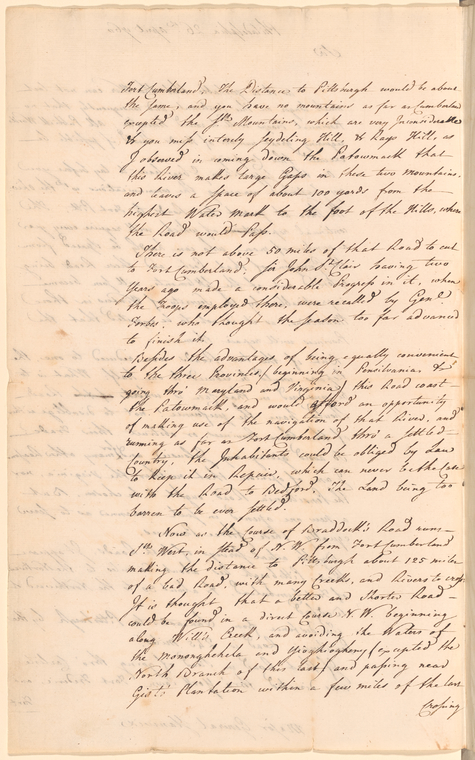 Fort Cumberland. The Distance to Pittsburgh would be about
the same, and you have no mountains as far as Cumberland
excepted the Sth Mountains, which are very Inconsiderable
& you miss intirely Seydeling Hill, & Rays Hill, as
I observed in coming down the Patowmack that
this River makes large Gaps in these two mountains.
and leaves a space of about 100 yards from the
highest Water mark to the foot of the Hills, where
the Road would pass.
There is not above 50 miles of that Road to cut
to Fort Cumberland: Sir John St Clair having two
Years ago made a considerable Progress in it, when
the Troops employed there, were recalled by Genl
Forbes, who thought the season too far advanced
to finish it.
Besides the advantages of being equally convenient
to the three Provinces, beginning in Pensilvania &
going thro' Maryland and Virginia, this Road coasts
the Patowmack, and would afford an opportunity
of making use of the navigation of that River, and
running as far as Fort Cumberland thro' a settled
Country, the Inhabitants could be obliged by Law
to keep it in Repair, which can never be the Case
with the Road to Bedford. The Land being too
barren to be ever settled.
Now as the Course of Braddock's Road runs
Sth West, in stead of N.W. from Fort Cumberland
making the distance to Pittsburgh about 125 miles
of a bad Road, with many Creeks, and Rivers to cross
It is thought that a better and shorter Road
could be found in a direct Course N.W. beginning
along Will's Creek, and avoiding the Waters of
the Mononghehela and Yioghioghony (excepted the
North Branch of this last) and passing near
Gist's Plantation within a few miles of the last
Crossing